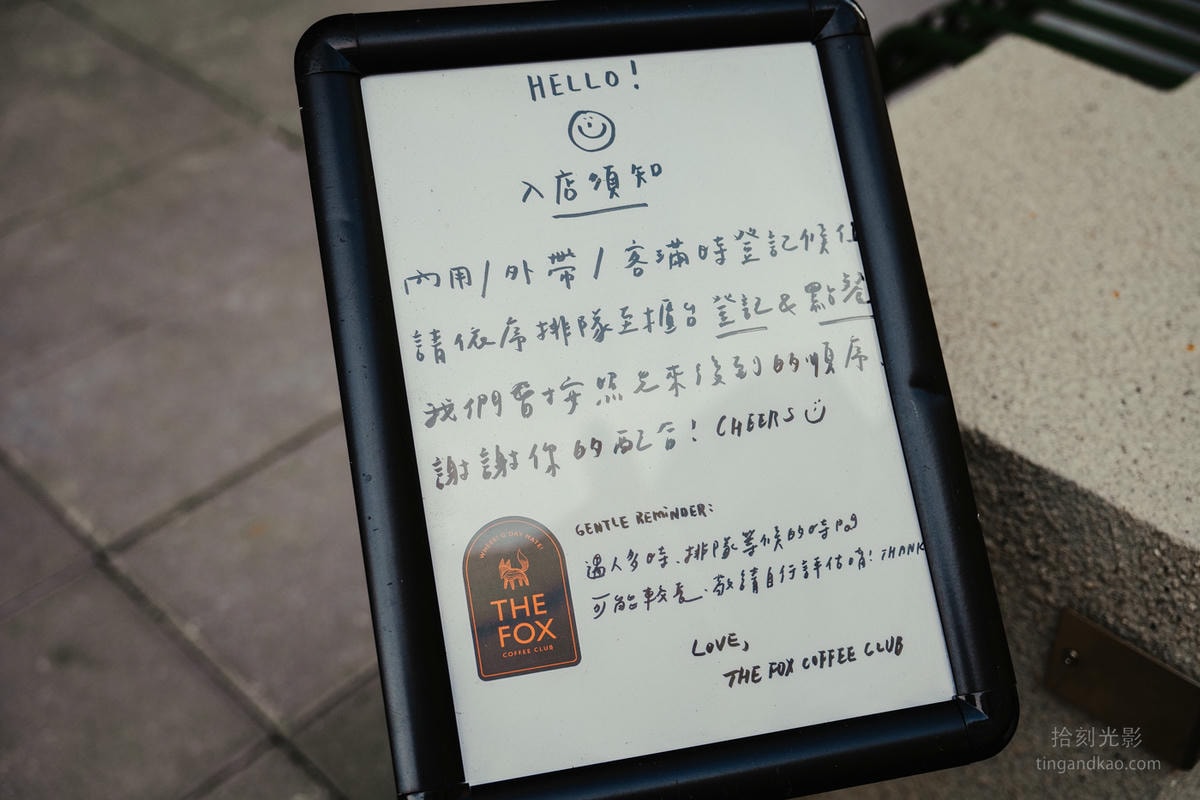 HELLO!
入店須知
內用/外帶/客滿時登記候位
請依序排隊至櫃台登記&點餐
我們會按照先來後到的順序.
謝謝你的配合! CHEERS
GENTLE REMINDER:
遇人多時、排隊等候的時間
可能較長.敬請自行評估唷! THANK
LOVE,
THE FOX COFFEE CLUB
WHERE? G'DAY MATE!
THE
FOX
COFFEE CLUB
拾刻光影
tingandkao.com